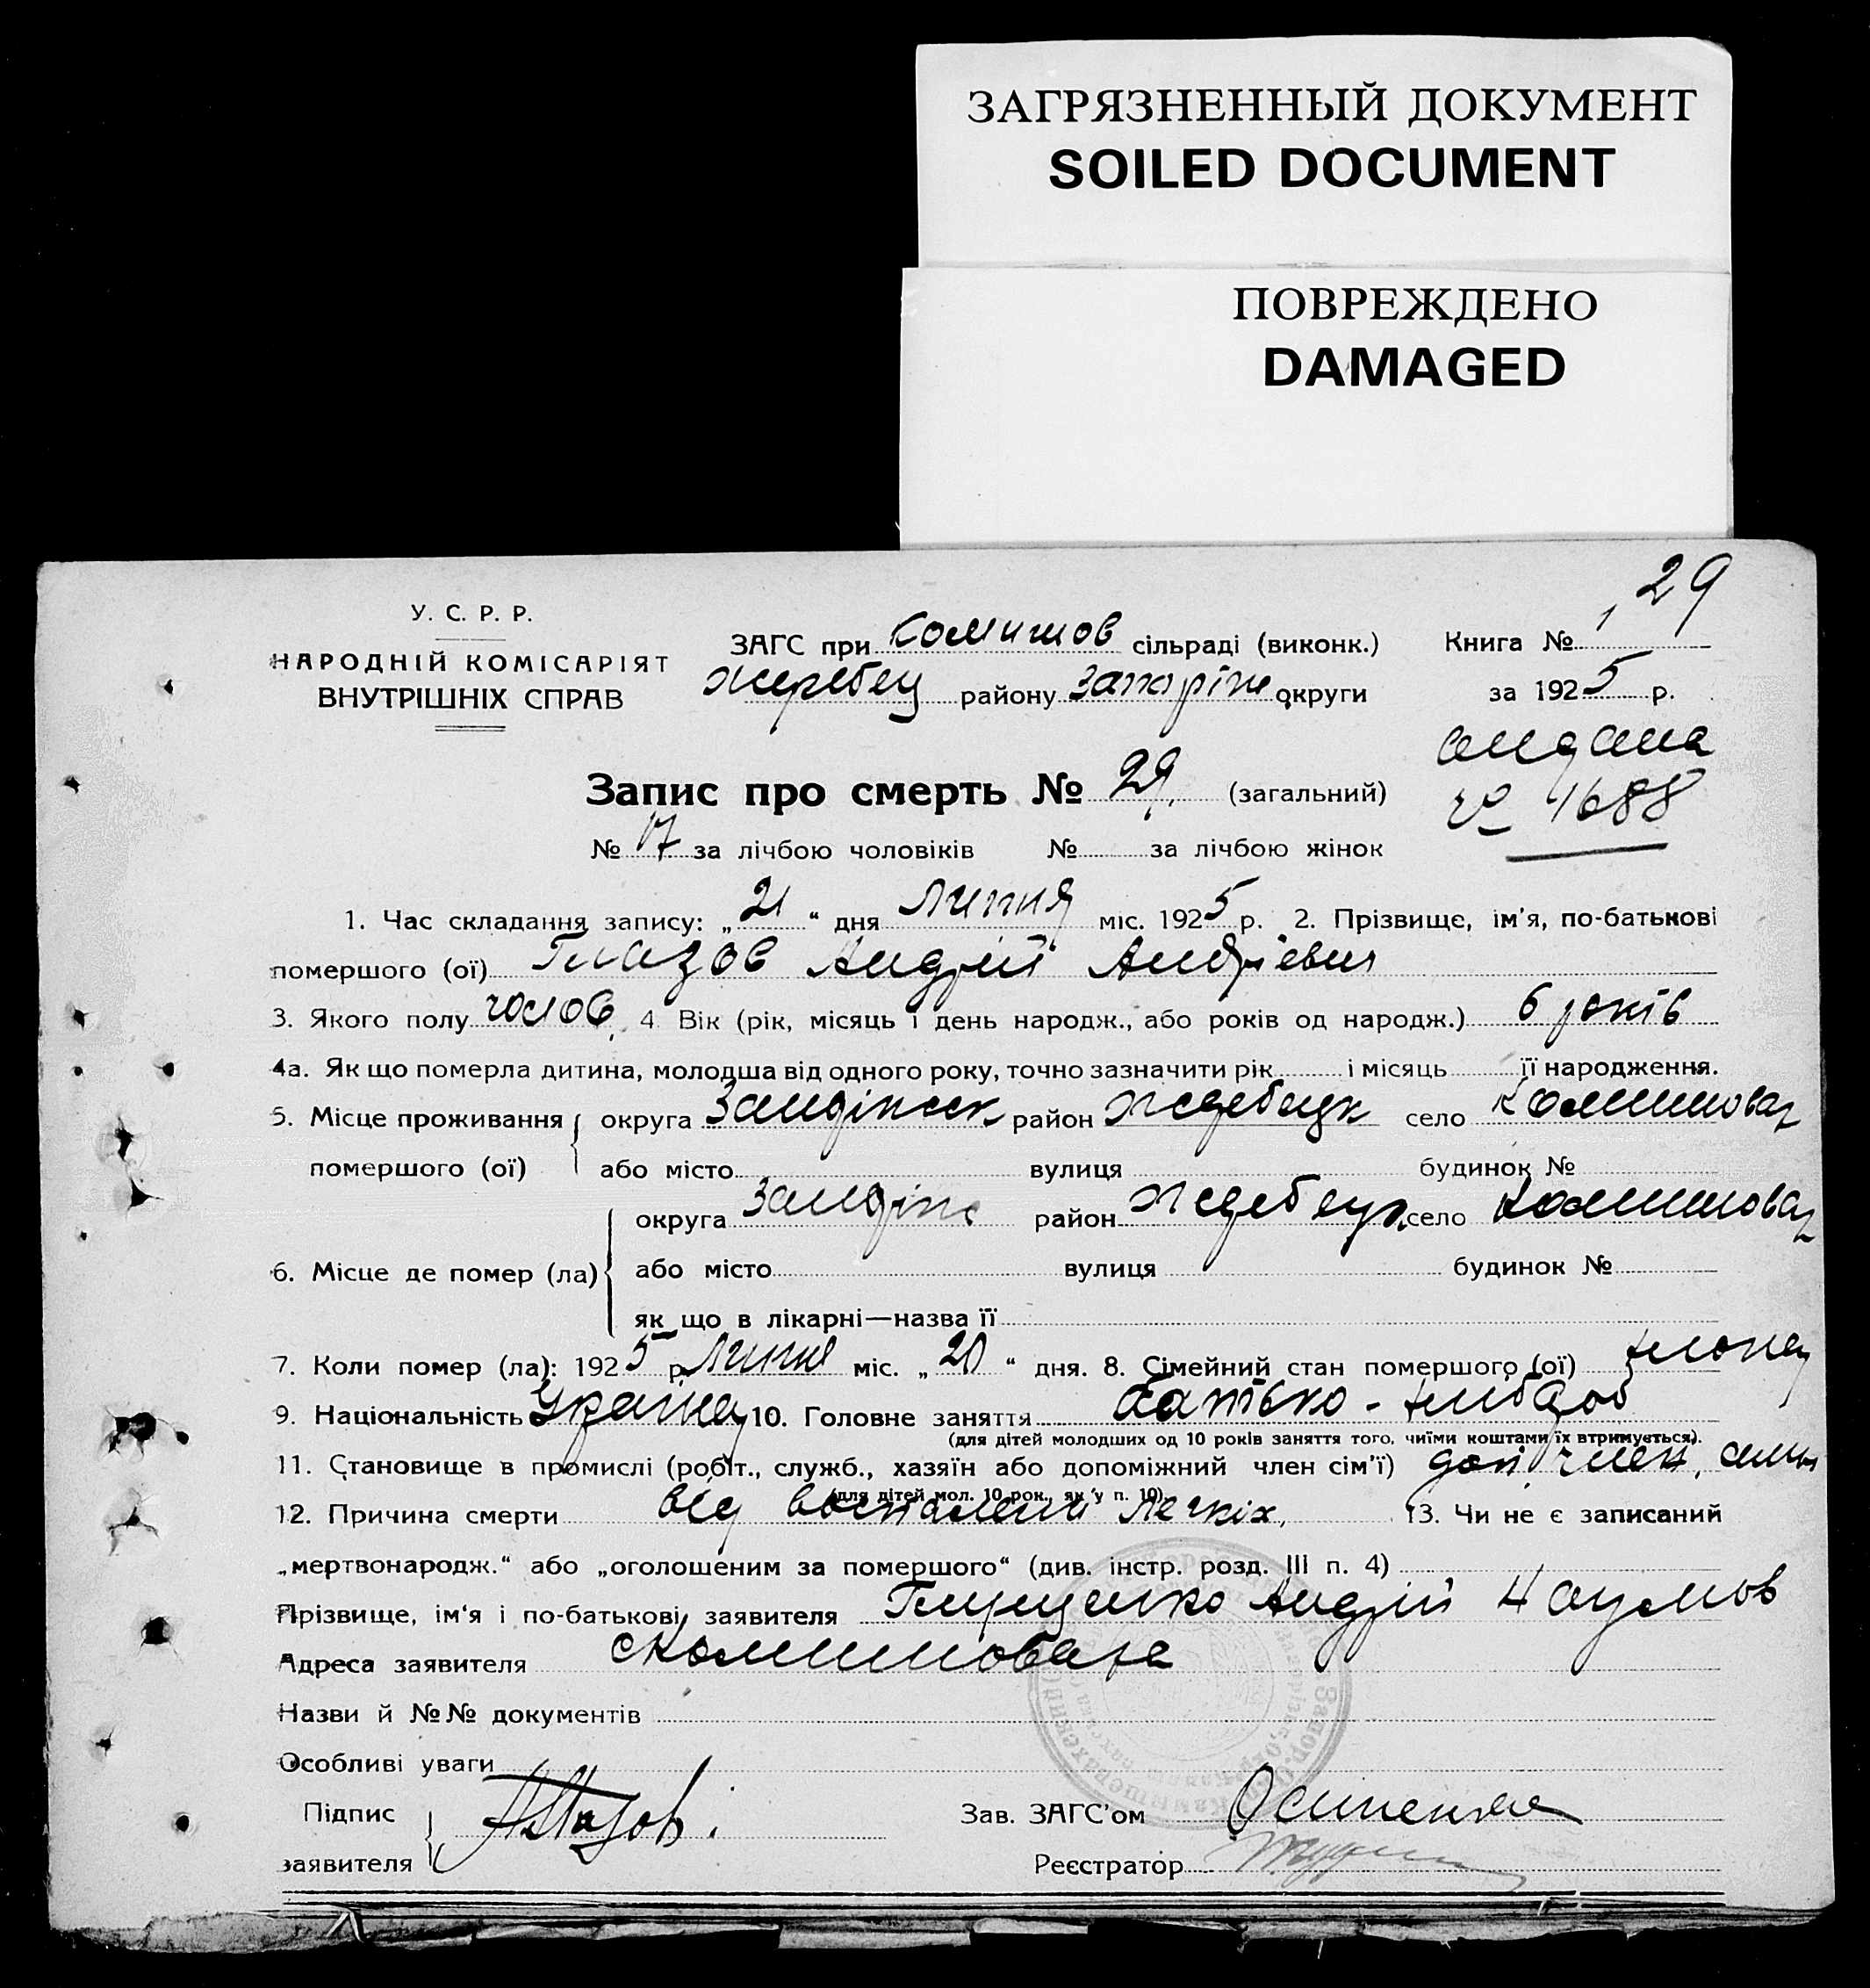 ЗАГРЯЗНЕННЫЙ ДОКУМЕНТ
SOILED DOCUMENT
ПОВРЕЖДЕНО
DAMAGED
29
У. С. Р. Р.
НАРОДНІЙ КОМІСАРІЯТ
ВНУТРІШНІХ СПРАВ
ЗАГС при Комишов сільраді (виконк.) Книга № 1
Жеребец району Запоріж округи за 1925 р.
№ 1688
Запис про смерть № 29. (загальний)
№ 17 за лічбою чоловіків № за лічбою жінок
1. Час складання запису: „21“ дня Липня міс. 1925 р. 2. Прізвище, ім'я, по-батькові
помершого (ої) Глазов Андрій Андрієвич
3. Якого полу чолов. 4. Вік (рік, місяць і день народж., або років од народж.) 6 років
4а. Як що померла дитина, молодша від одного року, точно зазначити рік і місяць її народження.
5. Місце проживання округа район село
помершого (ої) або місто вулиця будинок №
округа район село
6. Місце де помер (ла) або місто вулиця будинок №
як що в лікарні—назва її
7. Коли помер (ла): 1925 р. Липня міс. „20“ дня. 8. Сімейний стан помершого (ої)
9. Національність 10. Головне заняття батько - хлібороб
(для дітей молодших од 10 років заняття того, чиїми коштами їх втримується).
11. Становище в промислі (робіт., служб., хазяїн або допоміжний член сім'ї) доп член.
(для дітей мол. 10 рок., як у п. 10)
12. Причина смерти від воспаления легкіх, 13. Чи не є записаний
„мертвонародж.“ або „оголошеним за помершого“ (див. інстр. розд. III п. 4)
Прізвище, ім'я і по-батькові заявителя Андрій Наумов
Адреса заявителя
Назви й №№ документів
Особливі уваги
Підпис
заявителя АГлазов.
Зав. ЗАГС'ом
Реєстратор